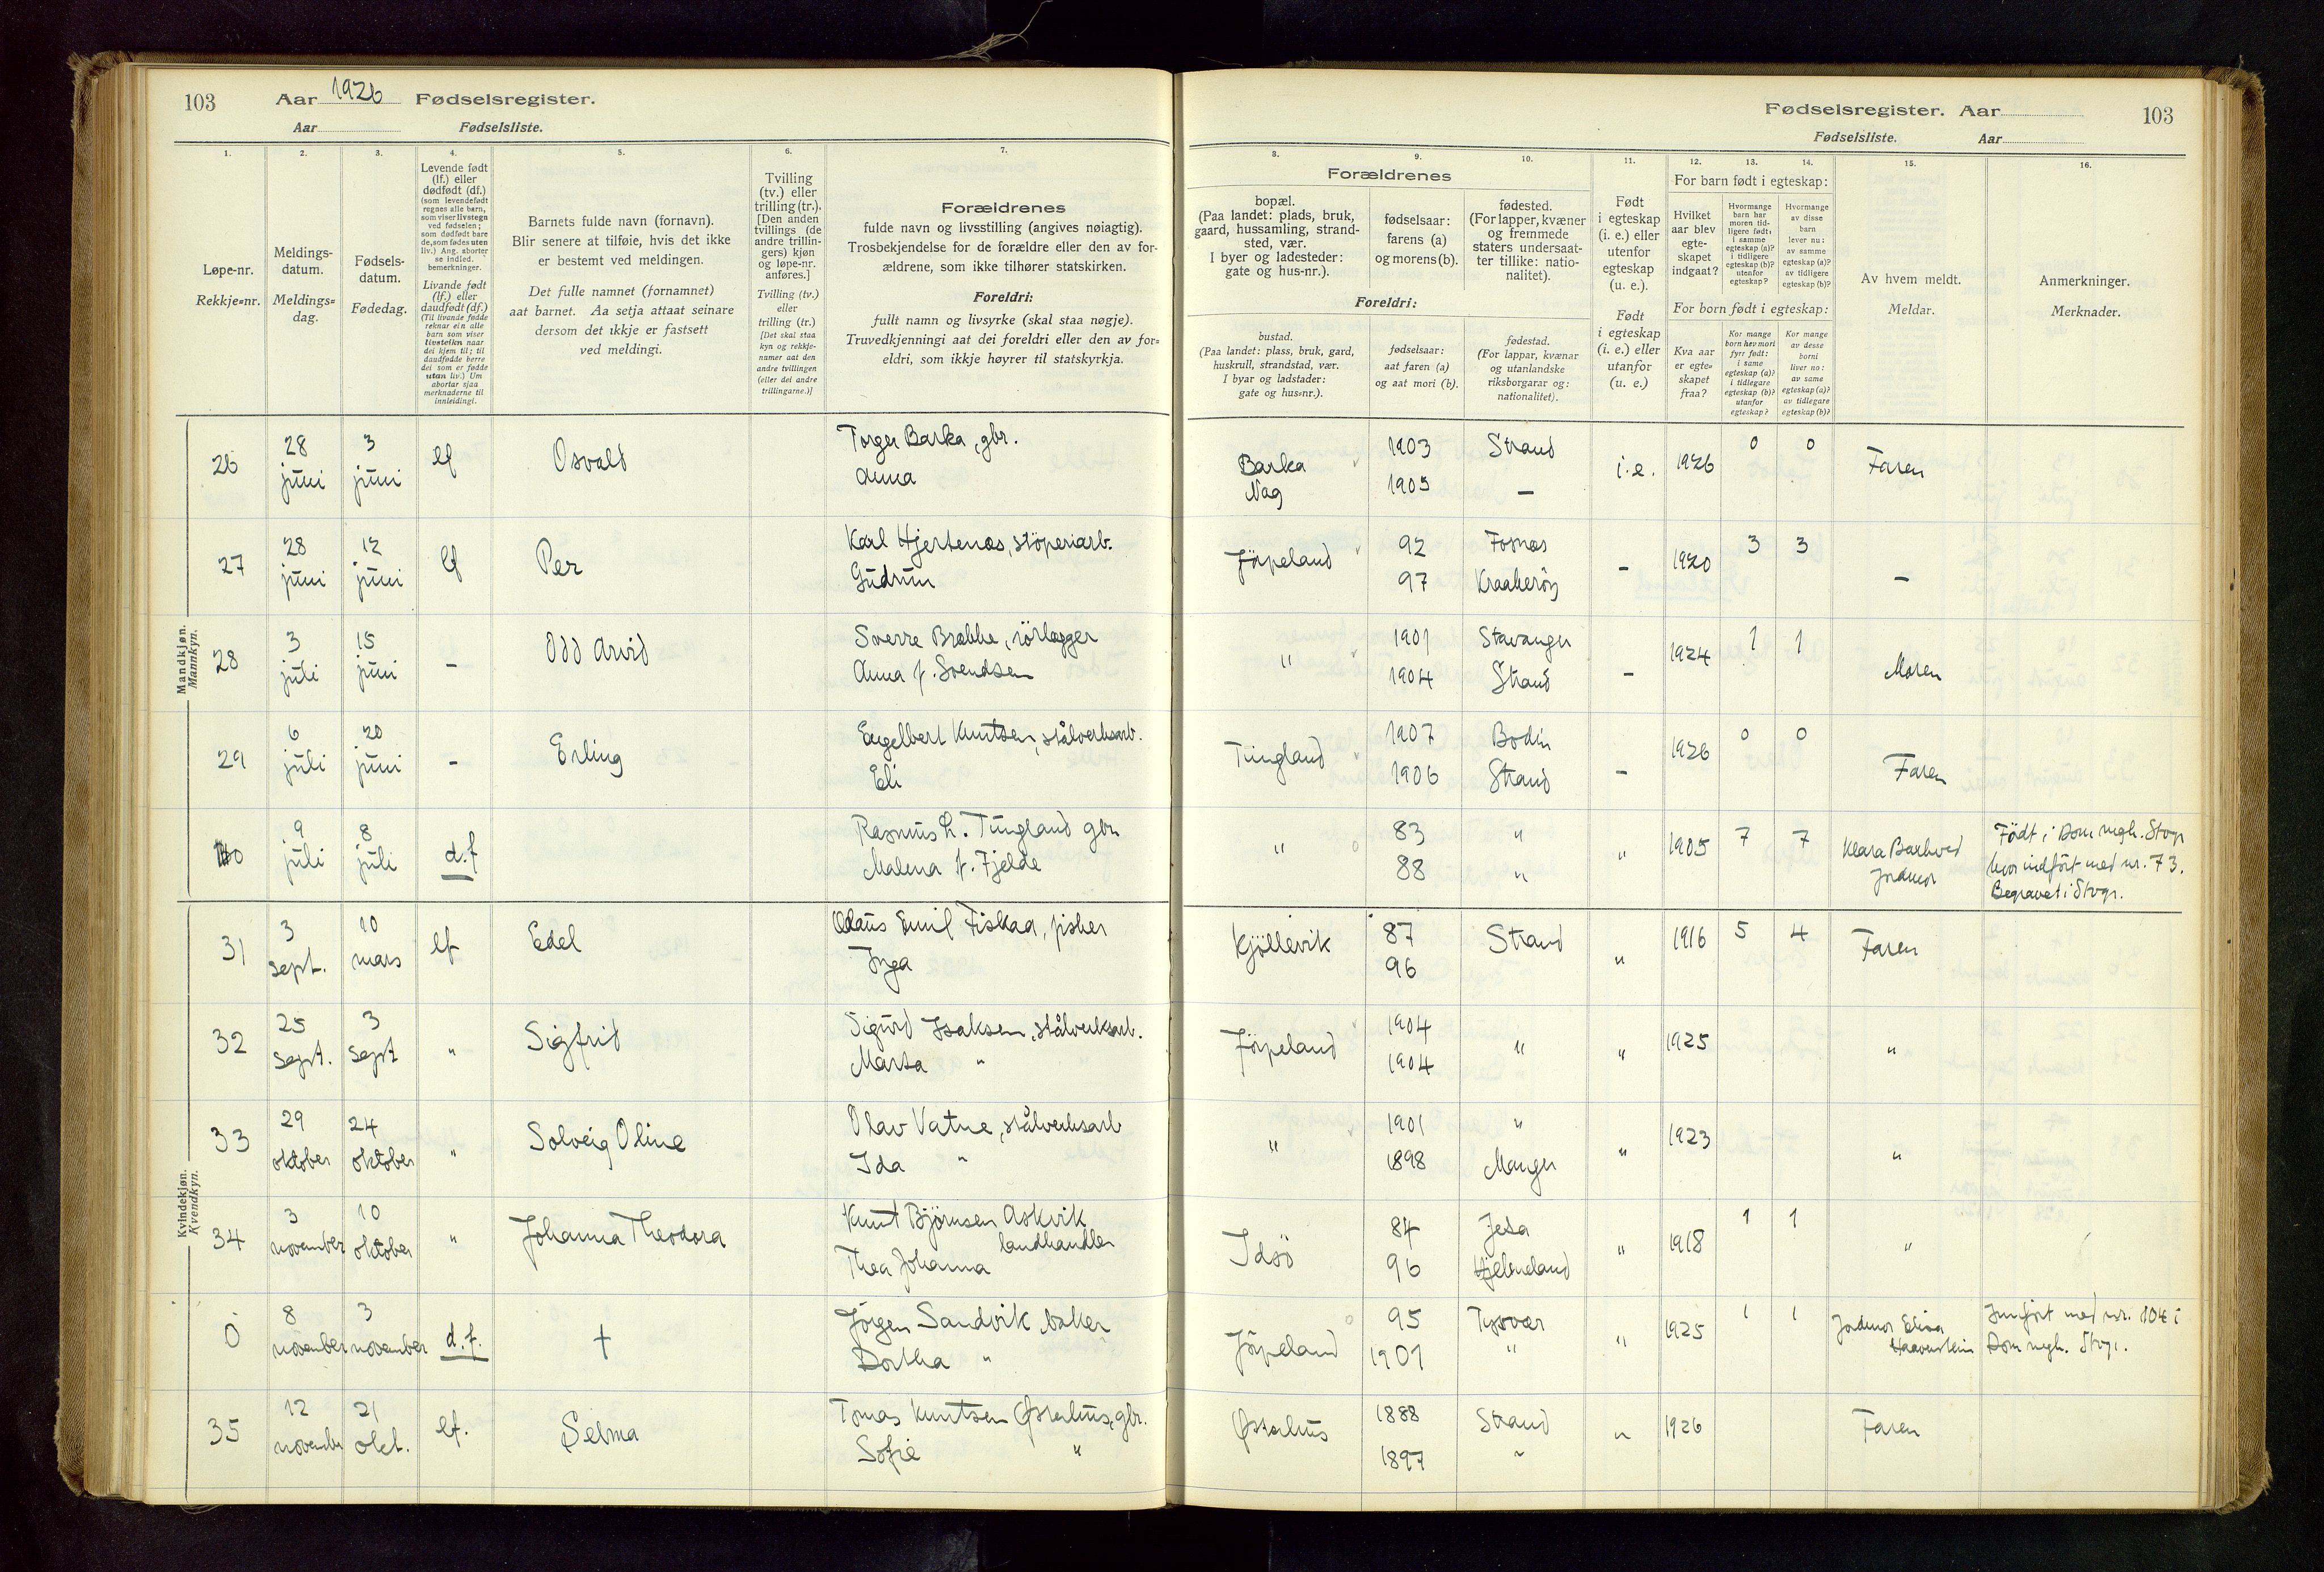 103 Aar 1926 Fødselsregister.
Aar Fødselsliste.
Fødselsregister. Aar 103
Fødselsliste. Aar
1. 2. 3. 4. 5. 6. 7. 8. 9. 10. 11. 12. 13. 14. 15. 16.
Løpe-nr.
Rekkje=nr.
Meldings-
datum.
Meldings=
dag.
Fødsels-
datum.
Fødedag.
Levende født
(lf.) eller
dødfødt (df.)
(som levendefødt
regnes alle barn,
som viser livstegn
ved fødselen;
som dødfødt bare
de, som fødes uten
liv.) Ang. aborter
se indled.
bemerkninger.
Livande født
(lf.) eller
daudfødt (df.)
(Til livande fødde
reknar ein alle
born som viser
livsteikn naar
dei kjem til; til
daudfødde berre
dei som er fødde
utan liv.) Um
abortar sjaa
merknaderne til
innleidingi.
Barnets fulde navn (fornavn).
Blir senere at tilføie, hvis det ikke
er bestemt ved meldingen.
Det fulle namnet (fornamnet)
aat barnet. Aa setja attaat seinare
dersom det ikkje er fastsett
ved meldingi.
Tvilling
(tv.) eller
trilling (tr.).
[Den anden
tvillings (de
andre trillin-
gers) kjøn
og løpe-nr.
anføres.]
Tvilling (tv.)
eller
trilling (tr.)
[Det skal staa
kyn og rekkje-
numer aat den
andre tvillingen
(eller dei andre
trillingarne.)]
Forældrenes
fulde navn og livsstilling (angives nøiagtig).
Trosbekjendelse for de forældre eller den av for-
ældrene, som ikke tilhører statskirken.
Foreldri:
fullt namn og livsyrke (skal staa nøgje).
Truvedkjenningi aat dei foreldri eller den av for=
eldri, som ikkje høyrer til statskyrkja.
Forældrenes
bopæl.
(Paa landet: plads, bruk,
gaard, hussamling, strand-
sted, vær.
I byer og ladesteder:
gate og hus-nr.).
fødselsaar:
farens (a)
og morens (b).
fødested.
(For lapper, kvæner
og fremmede
staters undersaat-
ter tillike: natio-
nalitet).
Foreldri:
bustad.
(Paa landet: plass, bruk, gard,
huskrull, strandstad, vær.
I byar og ladstader:
gate og hus=nr.).
fødselsaar:
aat faren (a)
og aat mori (b).
fødestad.
(For lappar, kvænar
og utanlandske
riksborgarar og:
nationalitet).
Født
i egteskap
(i. e.) eller
utenfor
egteskap
(u. e.).
Født
i egteskap
(i. e.) eller
utanfor
(u. e.)
For barn født i egteskap:
Hvilket
aar blev
egte-
skapet
indgaat?
Hvormange
barn har
moren tid-
ligere født:
i samme
egteskap (a)?
i tidligere
egteskap (b)?
utenfor
egteskap?
Hvormange
av disse
barn
lever nu:
av samme
egteskap (a)?
av tidligere
egteskap (b)?
For born født i egteskap:
Kva aar
er egte=
skapet
fraa?
Kor mange
born hev mori
fyrr født:
i same
egteskap (a)?
i tidlegare
egteskap (b)?
utanfor
egteskap?
Kor mange
av desse
borni
liver no:
av same
egteskap (a)?
av tidlegare
egteskap (b)?
Av hvem meldt.
Meldar.
Anmerkninger.
Merknader.
Mandkjøn.
Mannkyn.
26 28 juni 3 juni lf Osvald Torger Barka, gbr.
Anna
Barka
Nag 1903 1905 Strand — i.e. 1926 0 0 Faren
27 28 juni 12 juni lf Per Karl Hjertenæs, støperiarb.
Gudrun
Jørpeland 92 97 Fosnæs Kraakerøy – 1920 3 3 –
28 3 juli 15 juni – Odd Arvid Sverre Brekke, rørlægger
Anna f. Svendsen
" 1901 1904 Stavanger Strand – 1924 1 1 Moren
29 6 juli 20 juni – Erling Engelbert Knutsen, stålverksarb.
Eli
Tungland 1907 1906 Bodin Strand – 1926 0 0 Faren
0 9 juli 8 juli d.f Rasmus L. Tungland gbr
Malena f. Fjelde
" 83 88 " " " 1905 7 7 Klara Barkved
Jordmor
Født i Dom megh. Stvgr
hvor indført med nr. 73.
Begravet i Stvgr.
Kvindekjøn.
Kvendkyn.
31 3 sept. 10 mars lf Edel Olaus Emil Fiskaa, fisker
Inga
Kjøllevik 87 96 Strand " 1916 5 4 Faren
32 25 sept. 3 sept " Sigfrid Sigurd Isaksen, stålverksarb.
Marta "
Jørpeland 1904 1904 " " 1925 "
33 29 oktober 24 oktober " Solveig Oline Olav Vatne, stålverksarb
Ida "
" 1901 1898 " Manger " 1923 "
34 3 november 10 oktober " Johanna Theodora Knut Bjørnsen Askvik
landhandler
Thea Johanna
Idsø 84 96 Jelsa Hjelmeland " 1918 1 1 "
0 8 november 3 november d.f. † Jørgen Sandvik, baker
Dorthea "
Jørpeland 95 1901 Tysvær " " 1925 1 1 Jordmor Elisa
Innført med nr. 104 i
Dom megh. Stvgr.
35 12 november 21 okt. lf. Selma Tomas Knutsen Østerhus, gbr.
Sofie "
Østerhus 1888 1897 Strand " " 1926 Faren